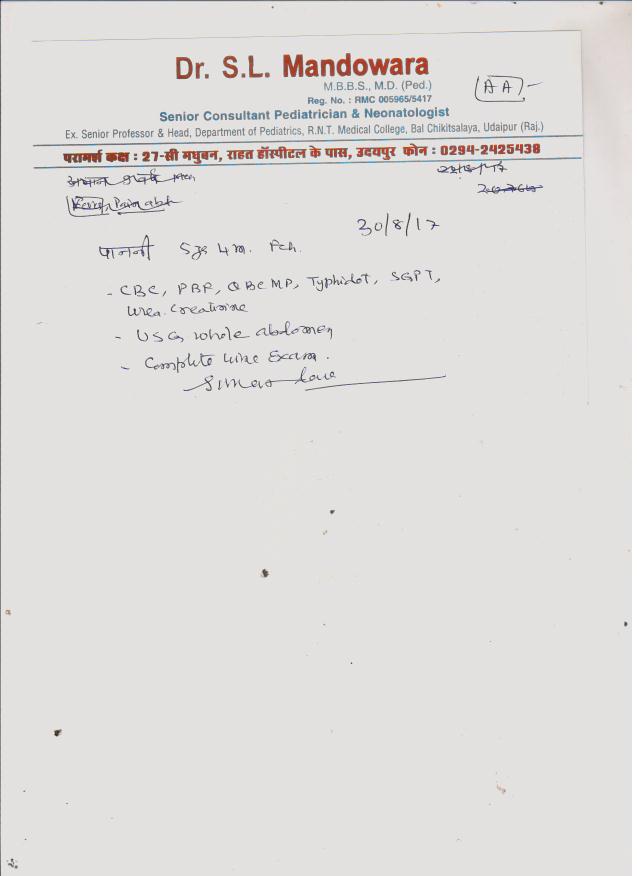 Dr. S.L. Mandowara
M.B.B.S., M.D. (Ped.)
Reg. No. : RMC 005965/5417
A A
Senior Consultant Pediatrician & Neonatologist
Ex. Senior Professor & Head, Department of Pediatrics, R.N.T. Medical College, Bal Chikitsalaya, Udaipur (Raj.)
परामर्श कक्ष : 27-सी मधुबन, राहत हॉस्पीटल के पास, उदयपुर फोन : 0294-2425438
Pain abd
30/8/17
5 4 m. Fch.
- CBC, PBF, QBC MP, Typhidot, SGPT,
Urea. Creatinine
- USG whole abdomen
- Complete urine Exam.